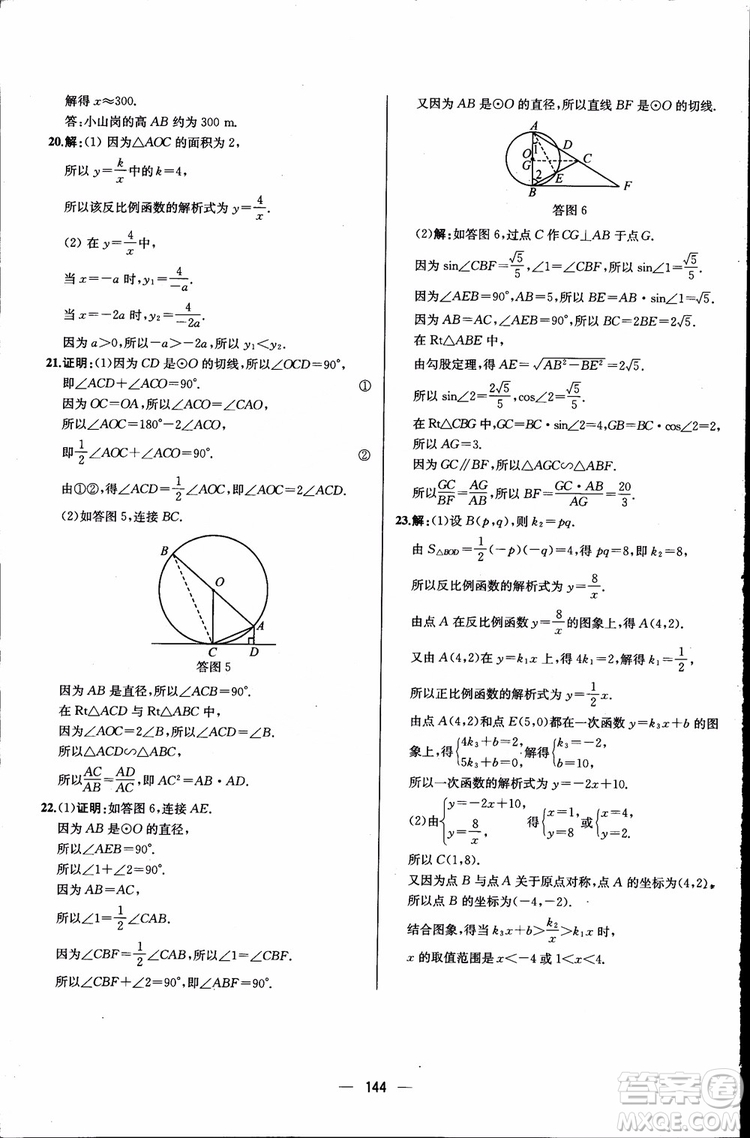 解得 x≈300.
答:小山岗的高 AB 约为 300 m.
20.解:(1) 因为△AOC 的面积为 2，
所以 y=k/x 中的 k=4.
所以该反比例函数的解析式为 y=4/x.
(2) 在 y=4/x 中，
当 x=-a 时, y₁=4/-a;
当 x=-2a 时, y₂=4/-2a.
因为 a>0,所以-a>-2a,所以 y₁<y₂.
21.证明:(1)因为 CD 是⊙O 的切线,所以∠OCD=90°,
即∠ACD+∠ACO=90°. ①
因为 OC=OA,所以∠ACO=∠CAO,
所以∠AOC=180°-2∠ACO,
即 1/2∠AOC+∠ACO=90°. ②
由①②,得∠ACD=1/2∠AOC,即∠AOC=2∠ACD.
(2)如答图 5,连接 BC.
B
O
A
C
D
答图 5
因为 AB 是直径,所以∠ACB=90°.
在 Rt△ACD 与 Rt△ABC 中,
因为∠AOC=2∠B,所以∠B=∠ACD.
所以△ACD∽△ABC.
所以AC/AB=AD/AC,即 AC²=AB·AD.
22.(1)证明:如答图 6,连接 AE.
因为 AB 是⊙O 的直径,
所以∠AEB=90°.
所以∠1+∠2=90°.
因为 AB=AC,
所以∠1=1/2∠CAB.
因为∠CBF=1/2∠CAB,所以∠1=∠CBF.
所以∠CBF+∠2=90°,即∠ABF=90°.
又因为 AB 是⊙O 的直径,所以直线 BF 是⊙O 的切线.
A
1
D
O
G
C
E
2
B
F
答图 6
(2)解:如答图 6,过点 C 作 CG⊥AB 于点 G.
因为 sin∠CBF=√5/5,∠1=∠CBF,所以 sin∠1=√5/5.
因为∠AEB=90°,AB=5,所以 BE=AB·sin∠1=√5.
因为 AB=AC,∠AEB=90°,所以 BC=2BE=2√5.
在 Rt△ABE 中,
由勾股定理,得 AE=√(AB²-BE²)=2√5.
所以 sin∠2=2√5/5,cos∠2=√5/5.
在 Rt△CBG 中,GC=BC·sin∠2=4,GB=BC·cos∠2=2,
所以 AG=3.
因为 GC∥BF,所以△AGC∽△ABF.
所以GC/BF=AG/AB.所以 BF=GC·AB/AG=20/3.
23.解:(1)设 B(p,q),则 k₂=pq.
由 S△BOD=1/2(-p)(-q)=4,得 pq=8,即 k₂=8,
所以反比例函数的解析式为 y=8/x.
由点 A 在反比例函数 y=8/x 的图象上,得 A(4,2).
又由 A(4,2)在 y=k₁x 上,得 4k₁=2,解得 k₁=1/2,
所以正比例函数的解析式为 y=1/2x.
由点 A(4,2)和点 E(5,0)都在一次函数 y=k₃x+b 的图
象上,得{4k₃+b=2, 5k₃+b=0.解得{k₃=-2, b=10.
所以一次函数的解析式为 y=-2x+10.
(2)由{y=-2x+10, y=8/x,得{x=1, y=8或{x=4, y=2.
所以 C(1,8).
又因为点 B 与点 A 关于原点对称,点 A 的坐标为(4,2),
所以点 B 的坐标为(-4,-2).
结合图象,得当 k₃x+b>k₂/x>k₁x 时,
x 的取值范围是 x<-4 或 1<x<4.
— 144 —
答案圈
MXQE.COM